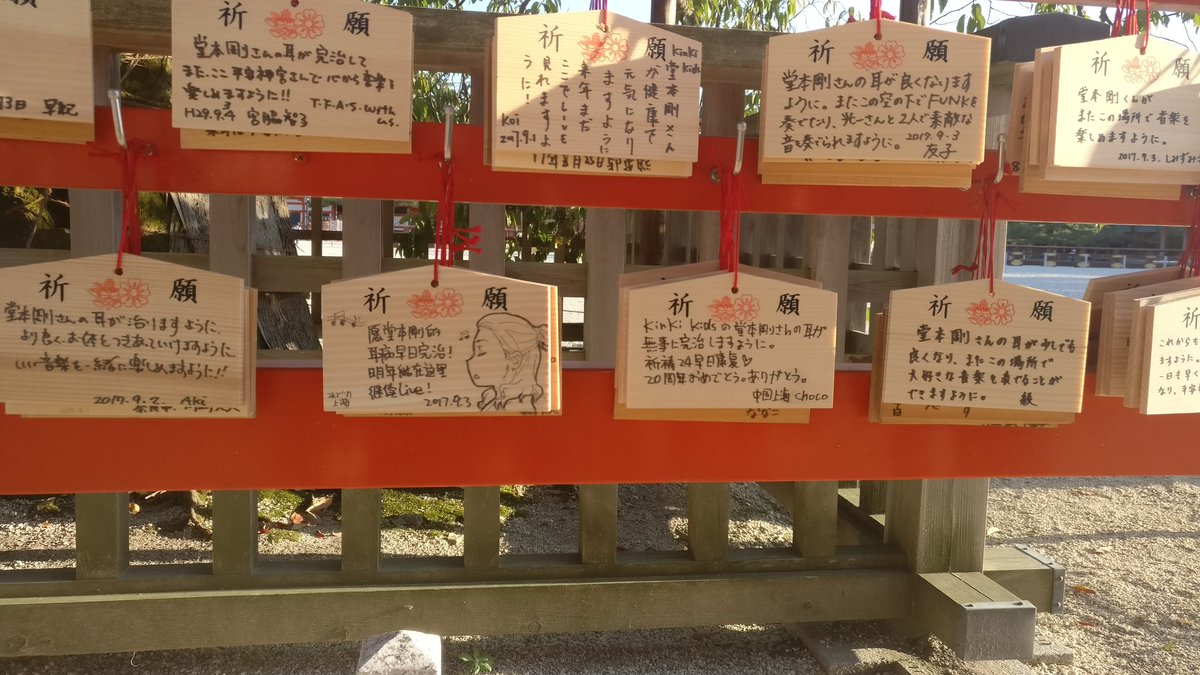 3日 早紀
祈願
堂本剛さんの耳が完治して
またここ平安神宮さんで心から音楽を
楽しめますように!!
H29.9.4 宮脇裕子
T.F.A.S. With
us.
祈願
Kinki Kids
堂本剛さん
が健康で
元気になり
ますように
来年また
ここでLiveを
見れますよ
うに!
Koi
2017.9.1
17年8月28日
祈願
堂本剛さんの耳が良くなります
ように。またこの空の下でFUNKを
奏でたり、光一さんと2人で素敵な
音を奏でられますように。
2017.9.3
友子
祈願
堂本剛くんが
またこの場所で音楽を
楽しめますように。
2017.9.3. しみずみさ
祈願
堂本剛さんの耳が治りますように、
より良くお体とつきあっていけますように
いい音楽を一緒に楽しめますように!!
2017.9.2. Aki
祈願
愿堂本剛的
耳病早日完治!
明年能在这里
継像Live!
上海
2017.9.3
祈願
Kinki Kidsの堂本剛さんの耳が
無事に完治しますように。
祈禱24早日康复♡
20周年おめでとう。ありがとう。
中国上海 CHOCO
ななこ
祈願
堂本剛さんの耳が少しでも
良くなり、またこの場所で
大好きな音楽を奏でることが
できますように。
祈
これからも
ますように。
一日も早く